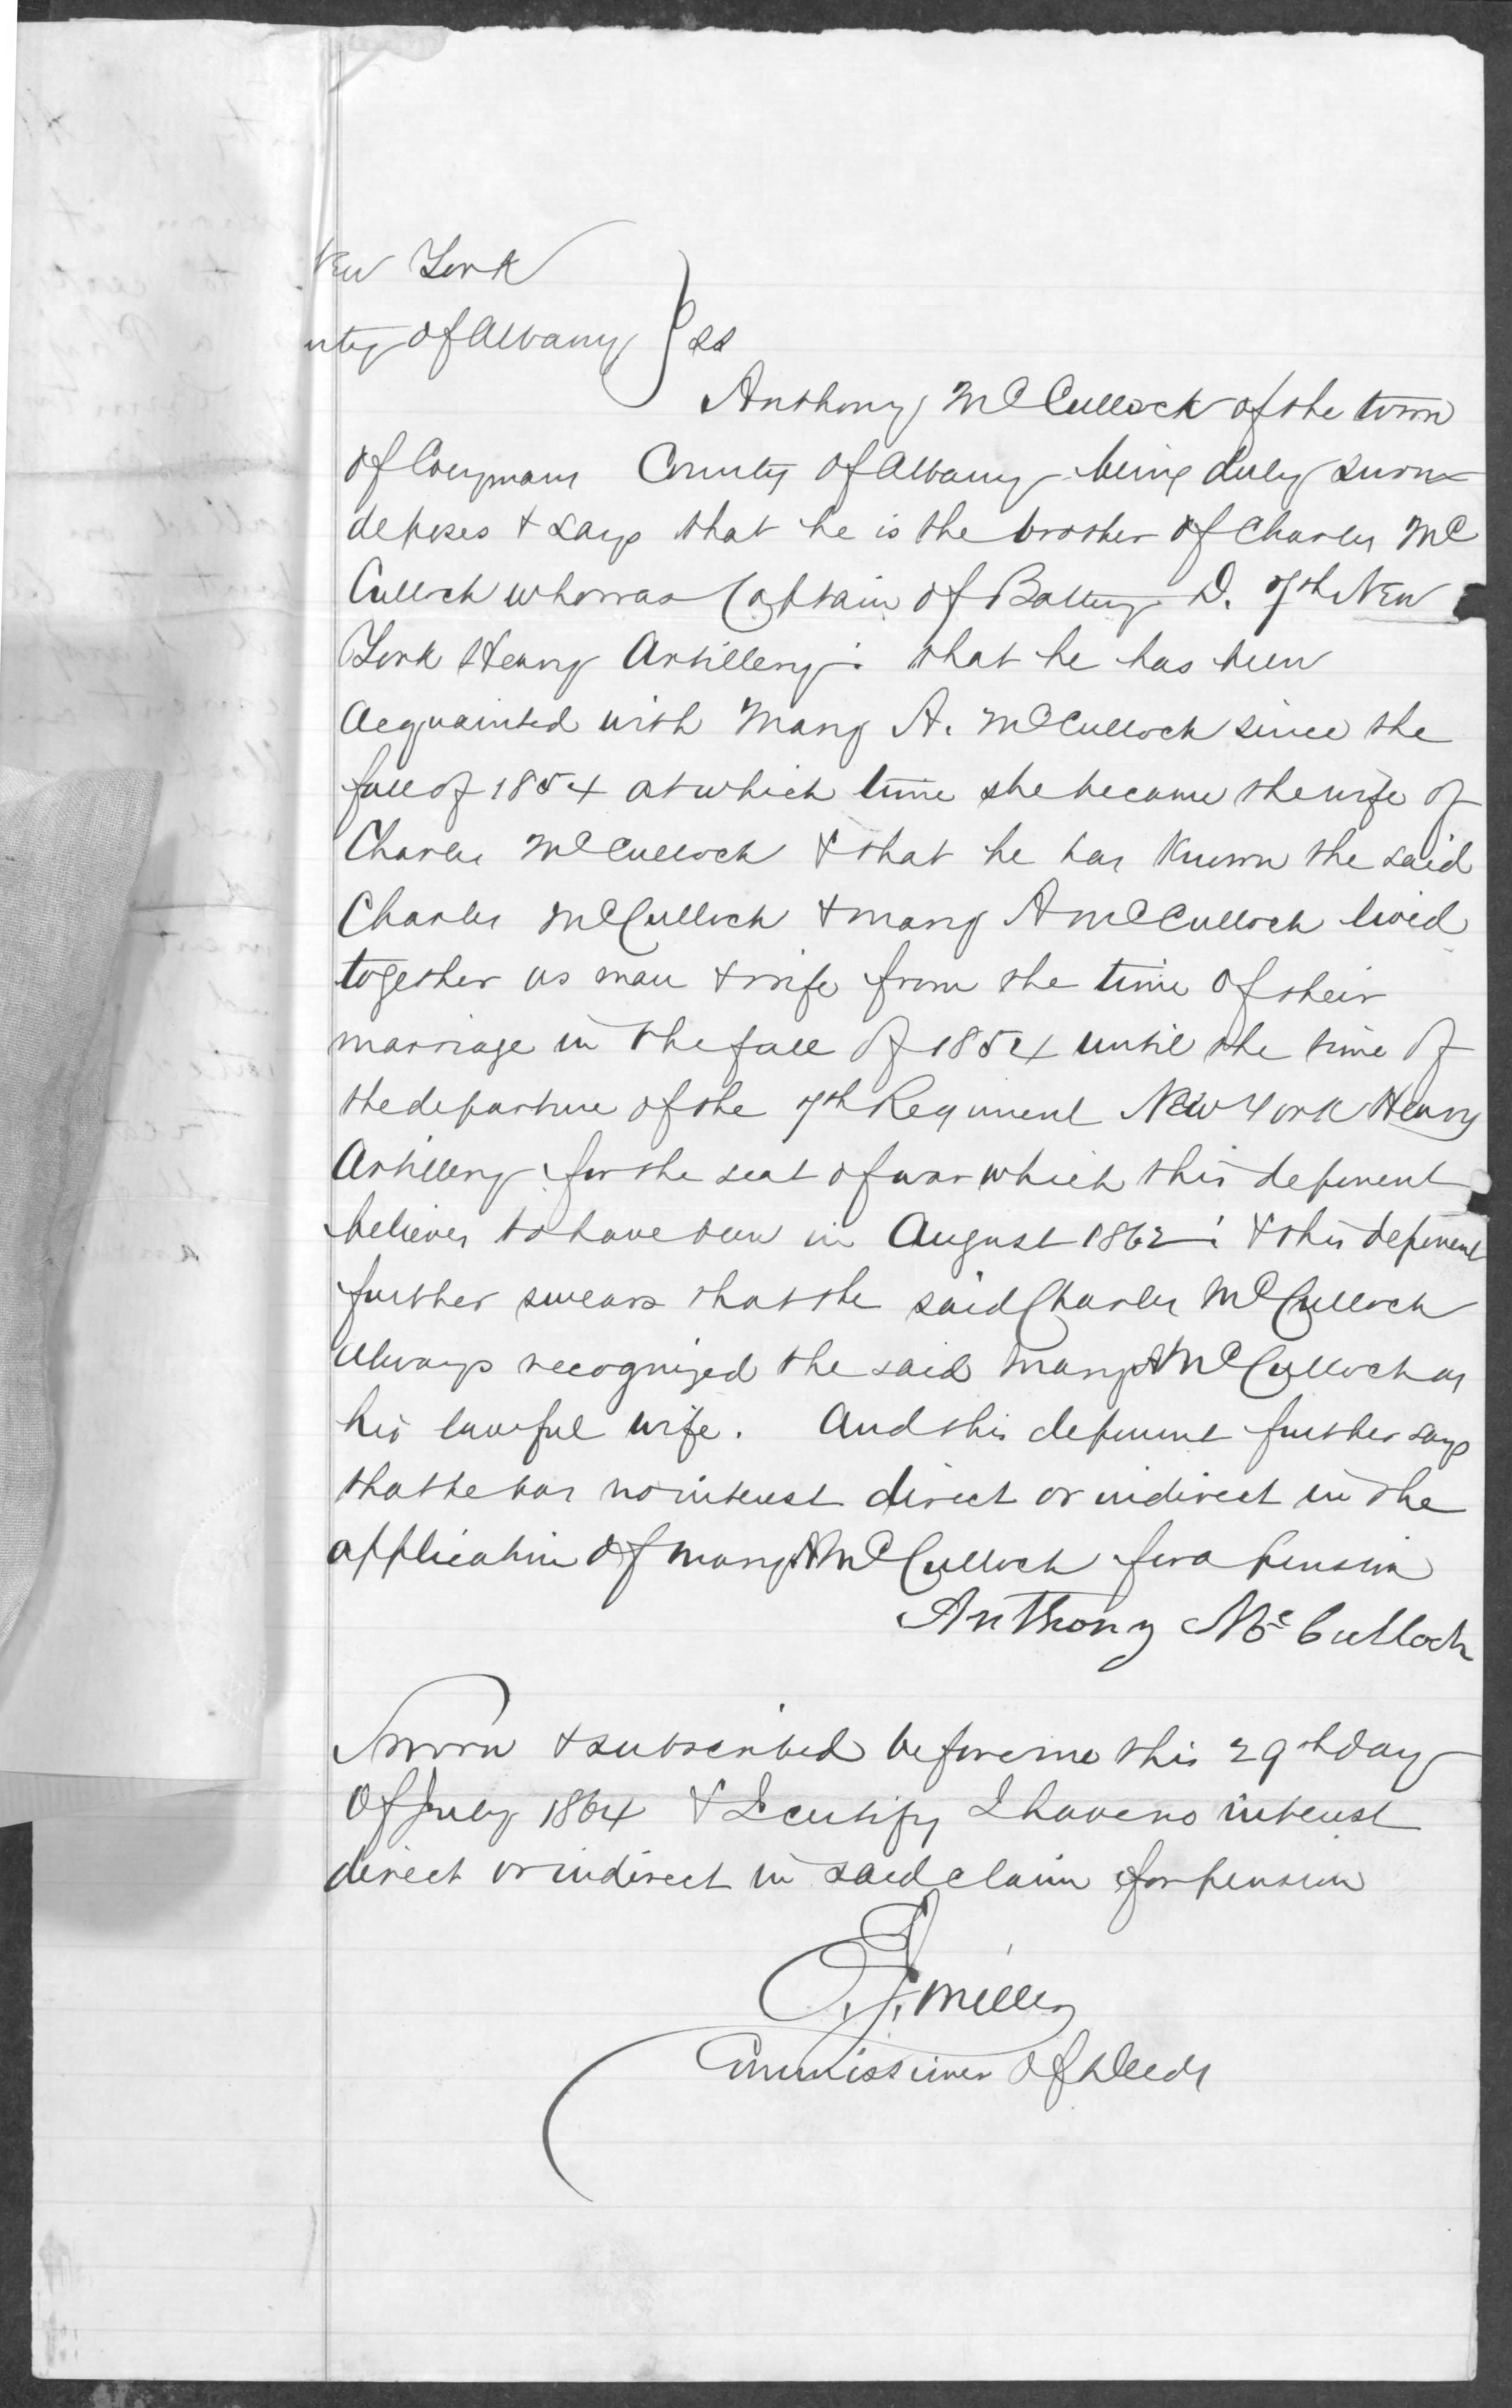 New York
nty of Albany } ss
Anthony McCulloch of the town
of Coeymans County of Albany being duly sworn
deposes & says that he is the brother of Charles Mc
Culloch who was Captain of Battery D. 7th New
York Heavy Artillery: that he has been
acquainted with Mary A. McCulloch since the
fall of 1854 at which time she became the wife of
Charles McCulloch & that he has known the said
Charles McCulloch & Mary A McCulloch lived
together as man & wife from the time of their
marriage in the fall of 1854 until the time of
the departure of the 7th Regiment New York Heavy
Artillery for the seat of war which this deponent
believes to have been in August 1862: & this deponent
further swears that the said Charles McCulloch
always recognized the said Mary A McCulloch as
his lawful wife. And this deponent further says
that he has no interest direct or indirect in the
application of Mary A McCulloch for a pension
Anthony McCulloch
Sworn & subscribed before me this 29th day
of July 1864 & I certify I have no interest
direct or indirect in said claim for pension
Miller
Commissioner of Deeds